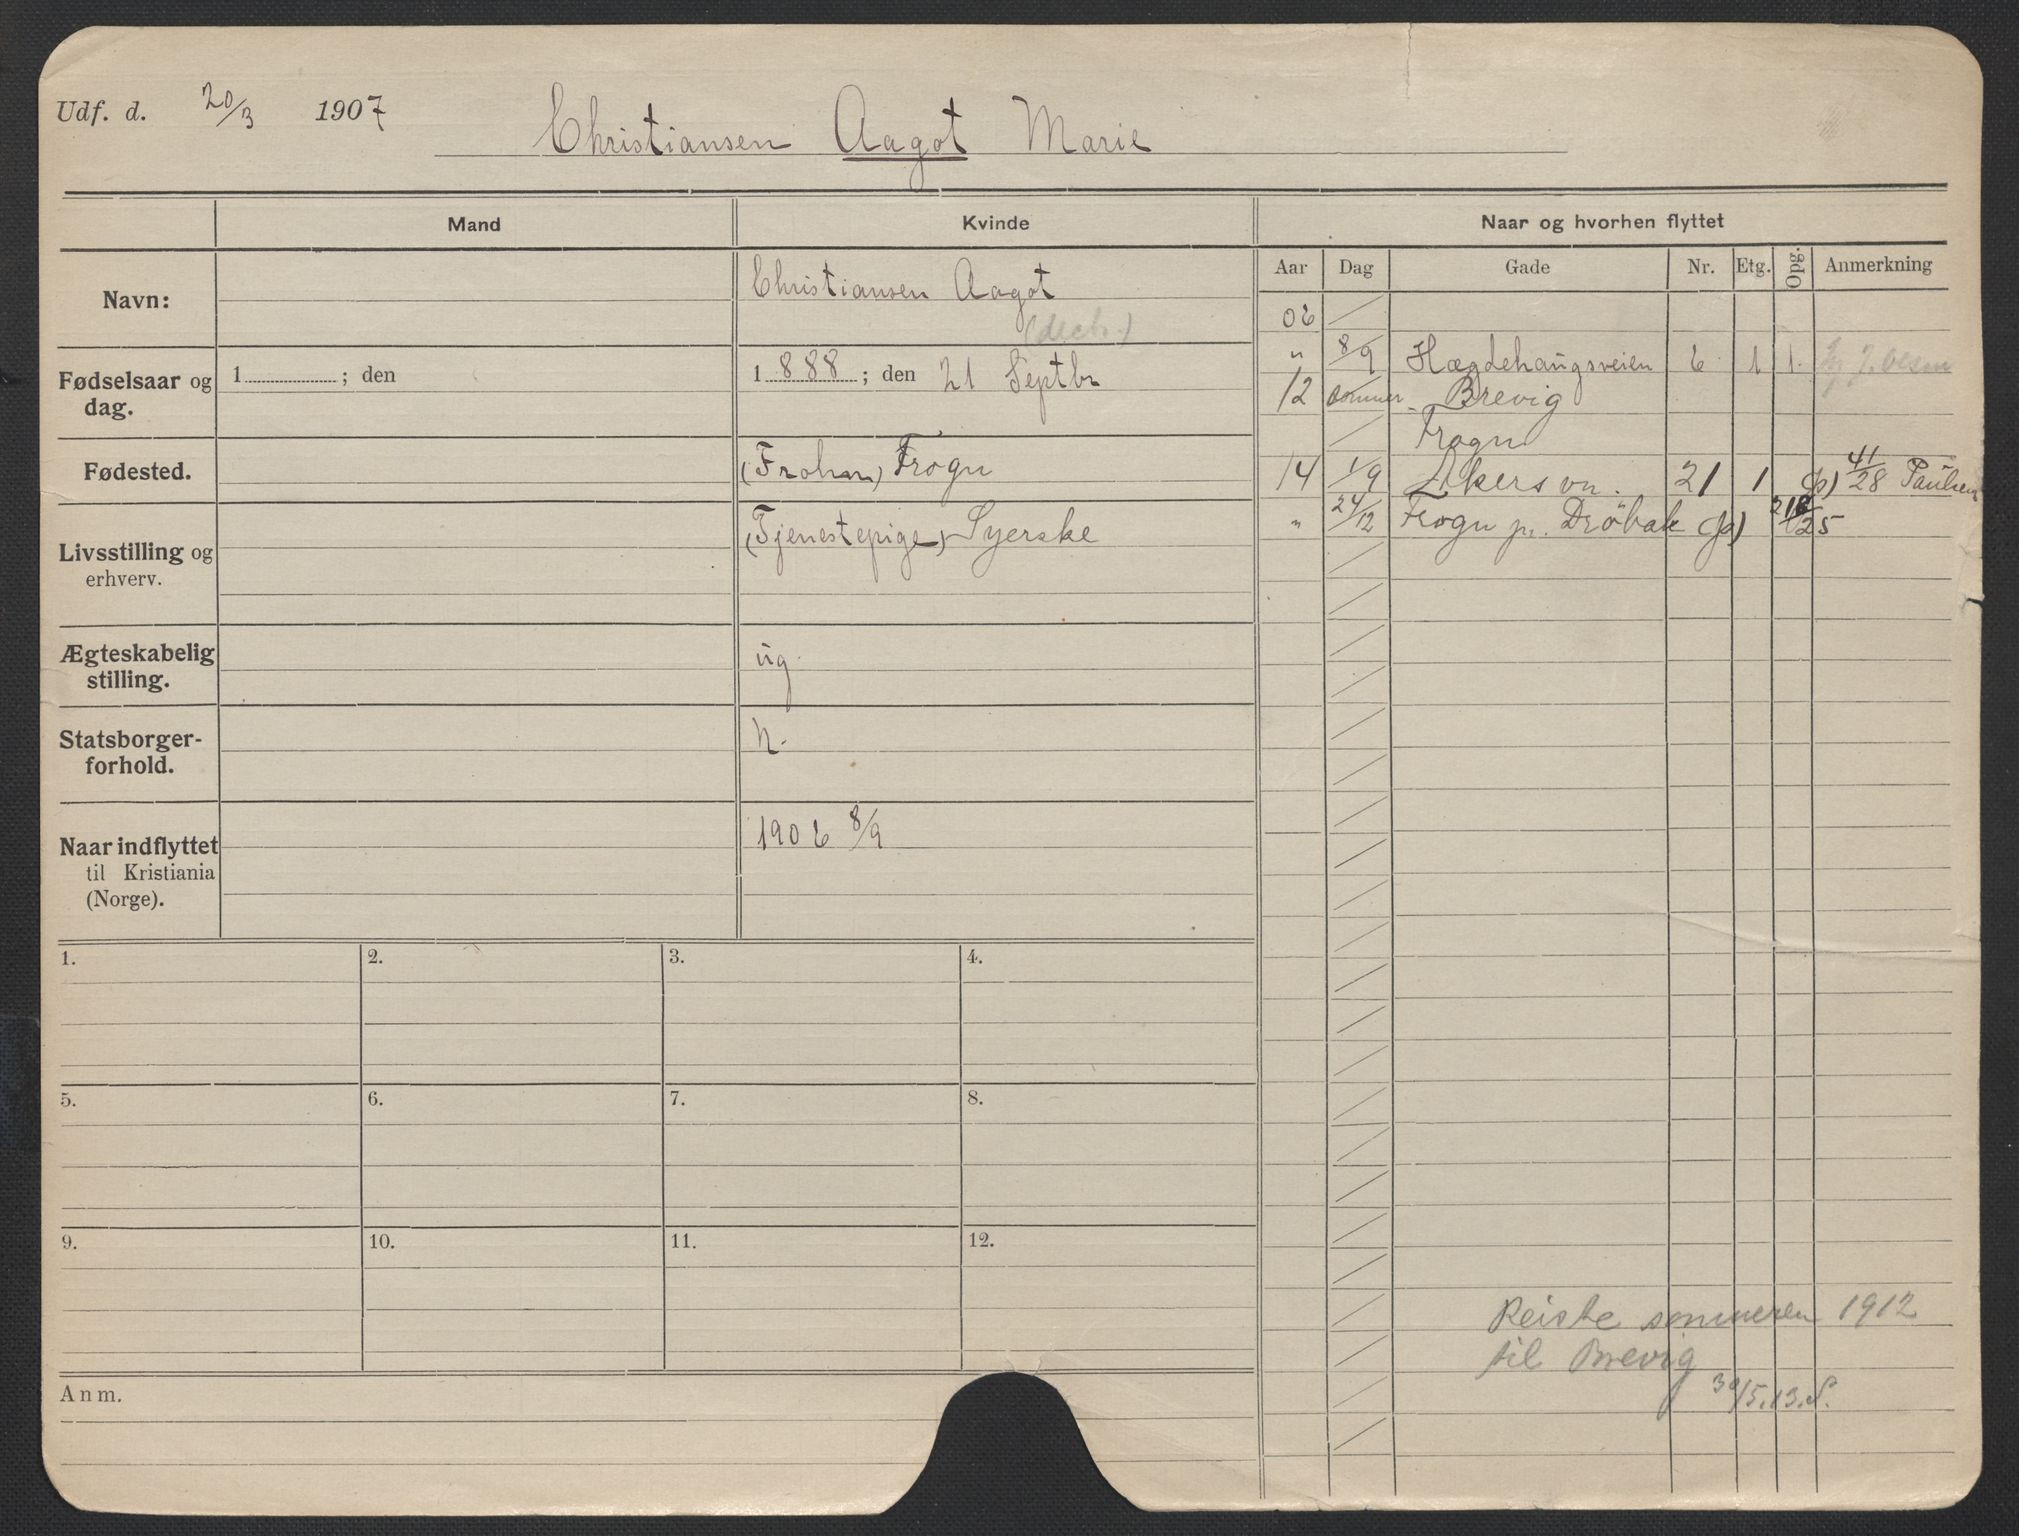 Udf. d. 20/3 1907
Christiansen Aagot Marie
Mand
Kvinde
Naar og hvorhen flyttet
Aar
Dag
Gade
Nr.
Etg.
Opg.
Anmerkning
Navn:
Christiansen Aagot
Fødselsaar og
dag.
1 ; den
1888 ; den 21 Septbr
Fødested.
(Frohn) Frogn
Livsstilling og
erhverv.
(Tjenestepige) Syerske
Ægteskabelig
stilling.
ug.
Statsborger-
forhold.
N.
Naar indflyttet
til Kristiania
(Norge).
1906 8/9
06
" 8/9 Hægdehaugsveien 6 1 1.
12 sommer Brevig
Frogn
14 1/9 Akersvn. 21 1 41/28 Paulsen
" 24/12 Frogn pr. Drøbak
1.
2.
3.
4.
5.
6.
7.
8.
9.
10.
11.
12.
Reiste sommeren 1912
til Brevig
30/5.13.S.
Anm.